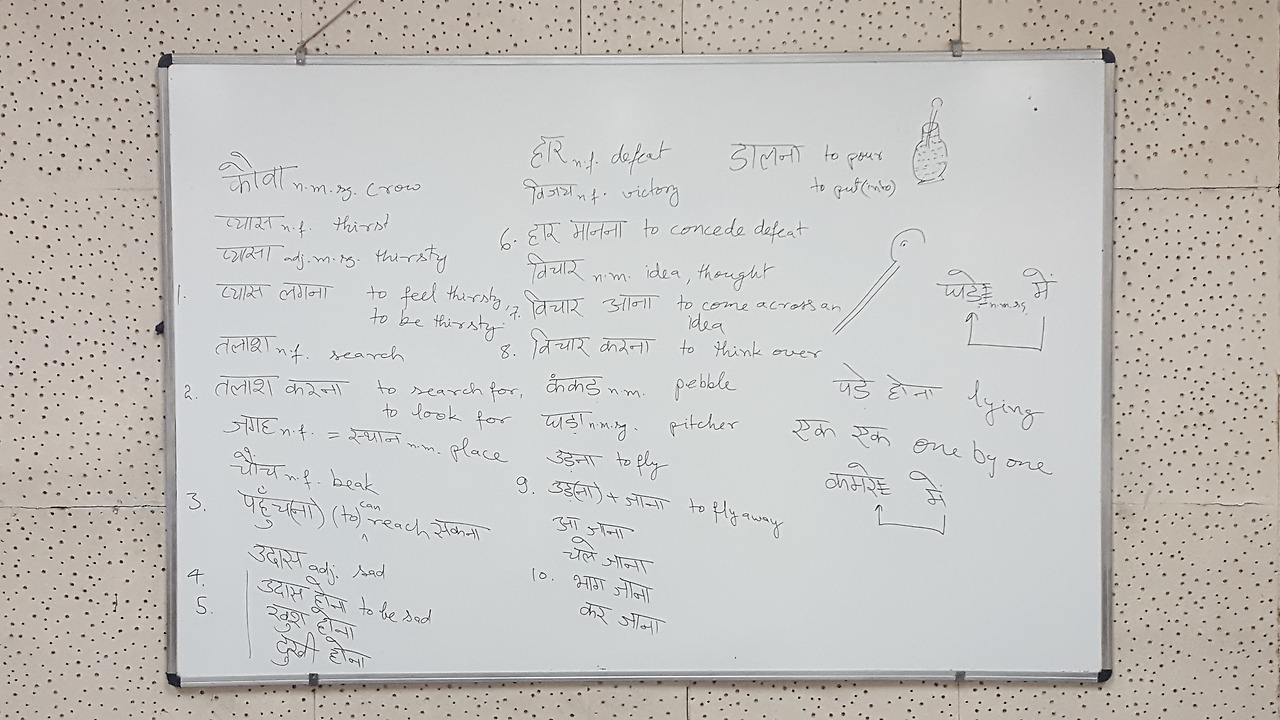 कौवा n.m.sg. crow
प्यास n.f. thirst
प्यासा adj.m.sg. thirsty
1. प्यास लगना to feel thirsty,
to be thirsty
तलाश n.f. search
2. तलाश करना to search for,
to look for
जगह n.f. = स्थान n.m. place
चोंच n.f. beak
3. पहुँच(ना) (to) can reach सकना
उदास adj. sad
4. उदास होना to be sad
5. खुश होना
दुखी होना
हार n.f. defeat
विजय n.f. victory
6. हार मानना to concede defeat
विचार n.m. idea, thought
7. विचार आना to come across an
idea
8. विचार करना to think over
कंकड़ n.m. pebble
घड़ा n.m.sg. pitcher
उड़ना to fly
9. उड़(ना) + जाना to fly away
आ जाना
चले जाना
10. भाग जाना
कर जाना
डालना to pour
to put (into)
घड़े n.m.sg. में
पड़े होना lying
एक एक one by one
कमरे में